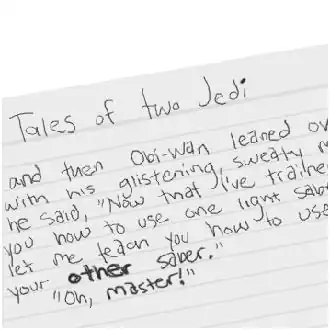 Tales of two Jedi
and then Obi-Wan leaned
with his glistening, sweaty
he said, "Now that I've
you how to use one light
let me teach you how to use
your other saber."
"Oh, master!"